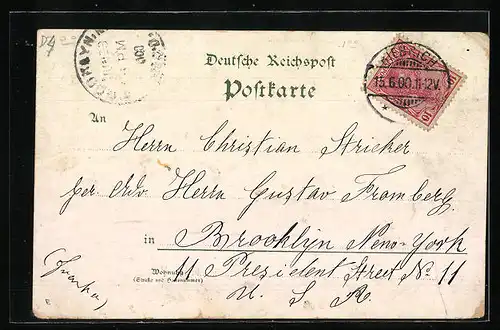 D4
BROOKLYN, N.
Deutsche Reichspost
Postkarte
BIEBRICH
15.6.00.11-12V.
10
An
Herrn Christian Stricker
per. Adr. Herrn Gustav Fromberg.
in Brooklyn Neno-York
Wohnung
(Straße und Hausnummer)
11 President Street No. 11
U. S. A.